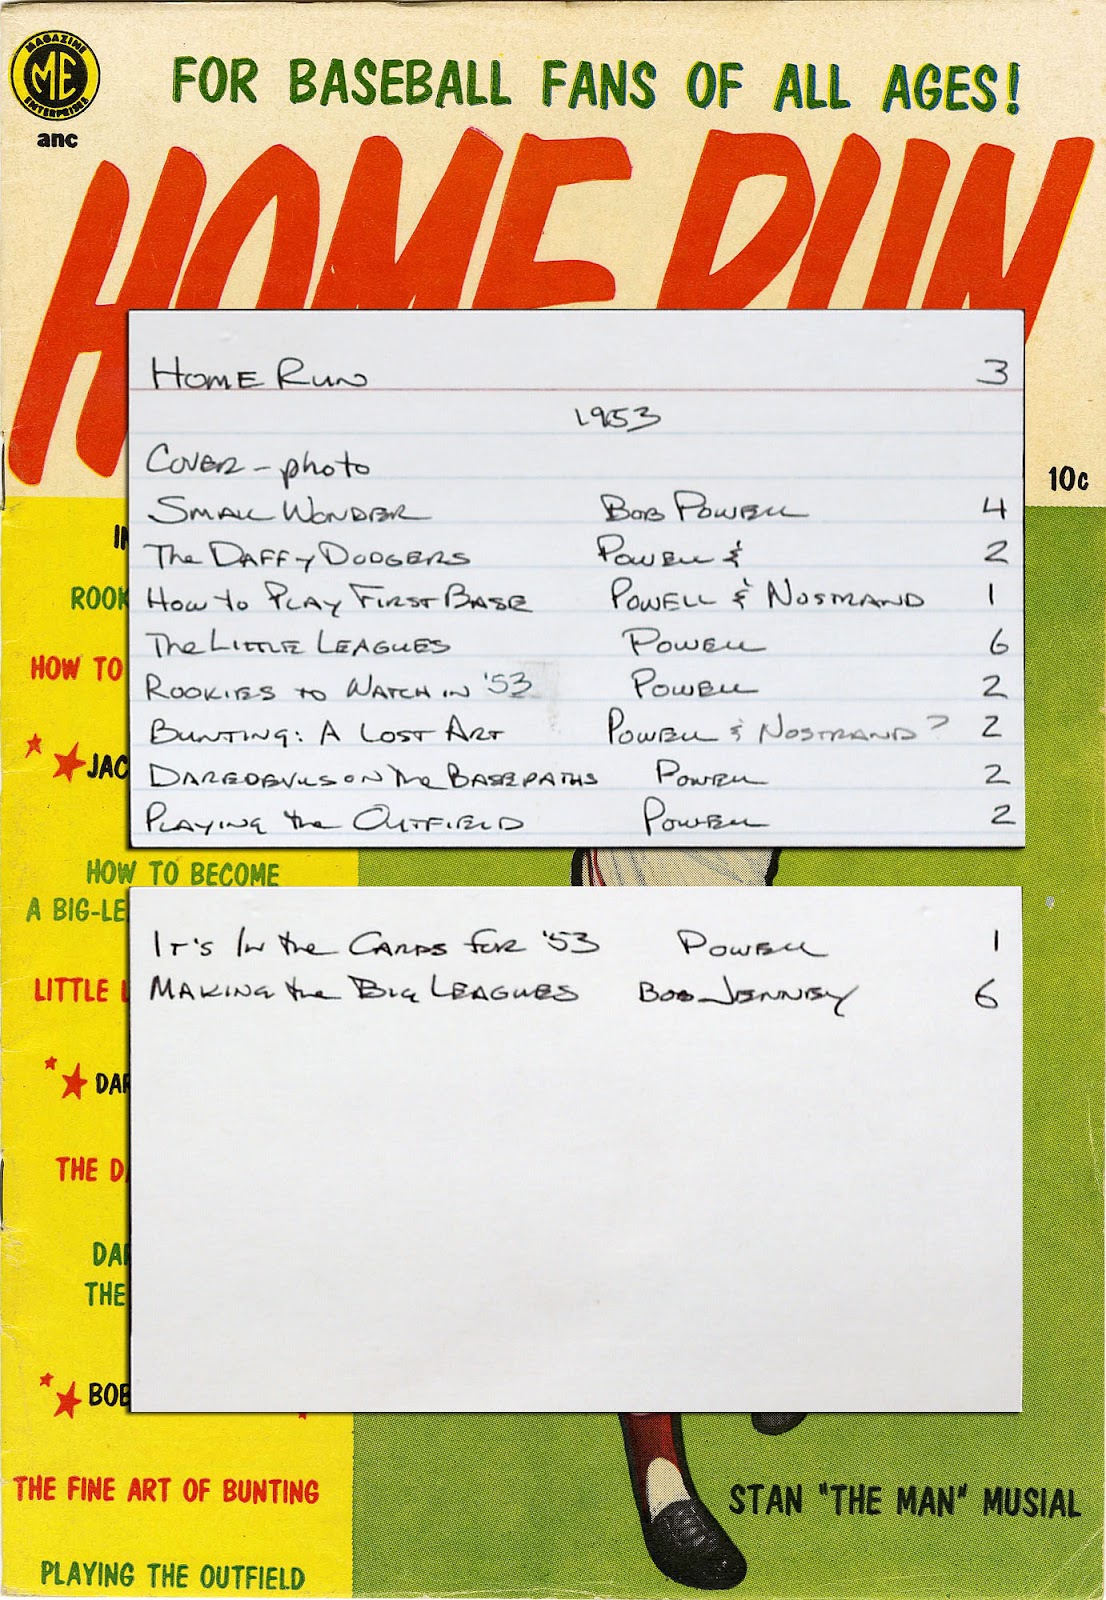 MAGAZINE
ME
ENTERPRISES
anc
FOR BASEBALL FANS OF ALL AGES!
HOME RUN
10c
HOME RUN 3
1953
COVER - photo
SMALL WONDER BOB POWELL 4
The DAFFY DODGERS POWELL & 2
HOW to PLAY FIRST BASE POWELL & NOSTRAND 1
The LITTLE LEAGUES POWELL 6
ROOKIES to WATCH IN '53 POWELL 2
BUNTING: A LOST ART POWELL & NOSTRAND? 2
DAREDEVILS ON the BASEPATHS POWELL 2
PLAYING the OUTFIELD POWELL 2
IT'S IN the CARDS for '53 POWELL 1
MAKING the BIG LEAGUES BOB JENNEY 6
ROOK
HOW TO
JAC
HOW TO BECOME
A BIG-LE
LITTLE
DAR
THE D
DAR
THE
BOB
THE FINE ART OF BUNTING
PLAYING THE OUTFIELD
STAN "THE MAN" MUSIAL